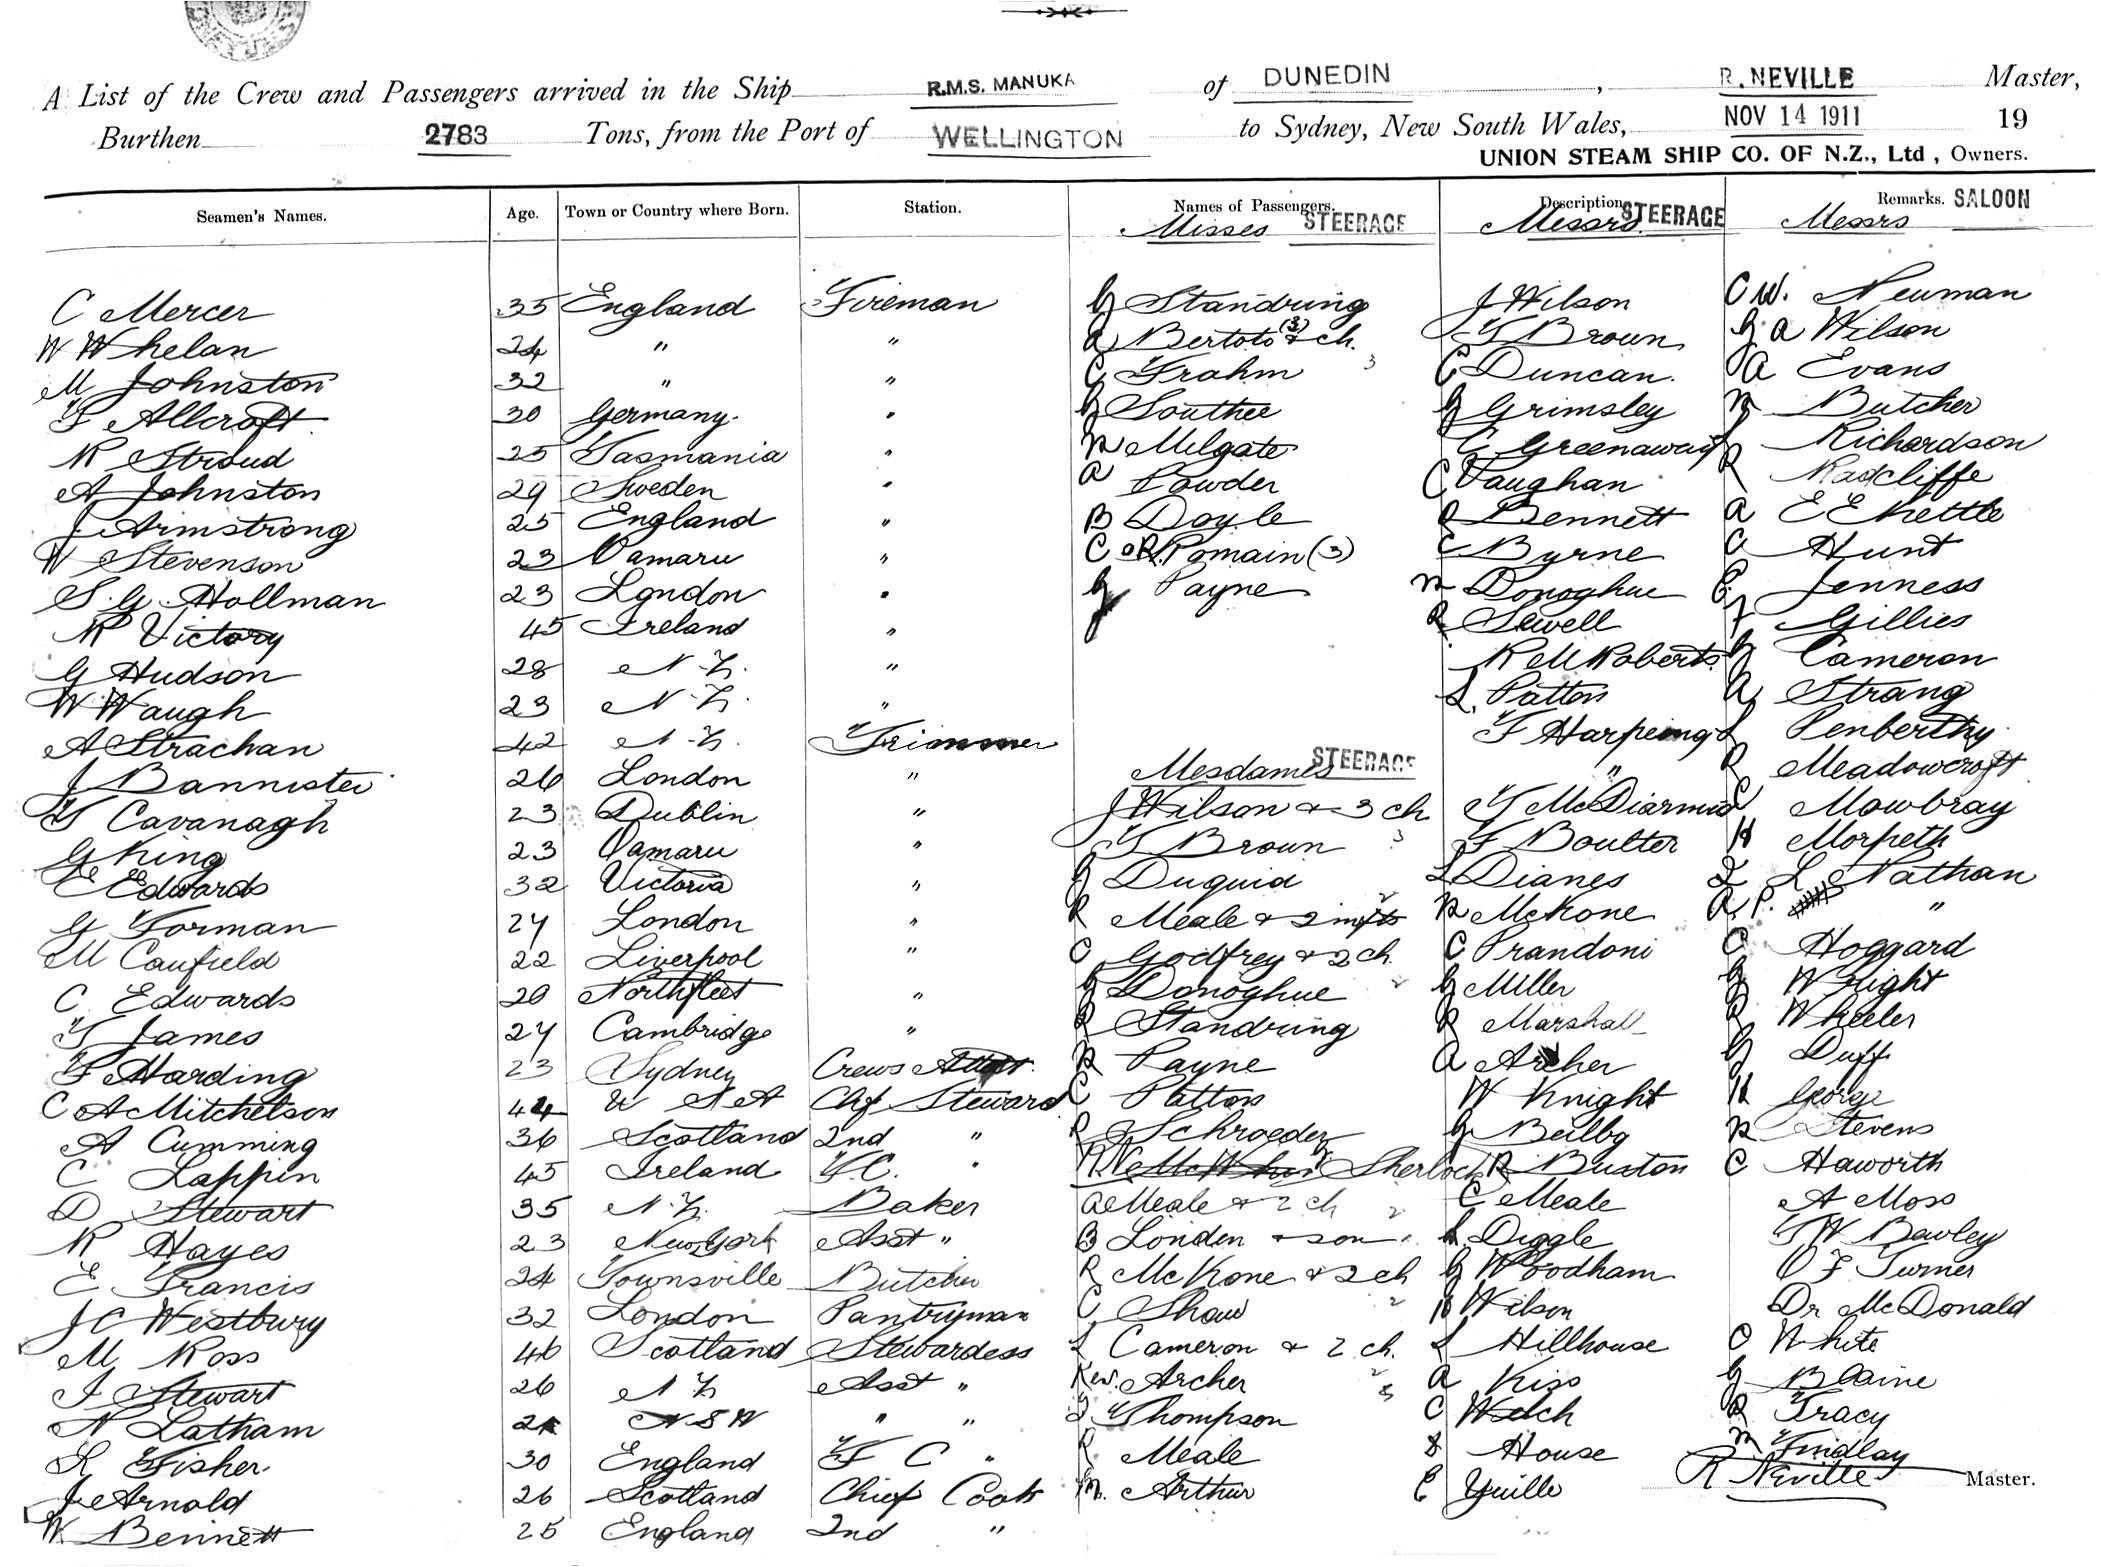 A List of the Crew and Passengers arrived in the Ship R.M.S. MANUKA of DUNEDIN, R. NEVILLE Master,
Burthen 2783 Tons, from the Port of WELLINGTON to Sydney, New South Wales, NOV 14 1911 19
UNION STEAM SHIP CO. OF N.Z., Ltd, Owners.
Seamen's Names. Age. Town or Country where Born. Station. Names of Passengers. Description Remarks. SALOON
Misses STEERAGE Messrs. STEERAGE Messrs
C Mercer 35 England Fireman G Standring J Wilson C W. Neuman
W Whelan 24 " " A Bertoto (3) & ch. T Brown G A Wilson
M Johnston 32 " " C Frahm 3 C Duncan. A Evans
F Allcroft 30 Germany. " G Southee G Grimsley M Butcher
R Stroud 25 Tasmania " R Milgate C Greenaway L Richardson
A Johnston 29 Sweden " A Powder C Vaughan R Radcliffe
J Armstrong 25 England " B Doyle R Bennett A E E Kettle
W Stevenson 23 Oamaru " C & R Romain (3) C Byrne C Hunt
S. G. Hollman 23 London " G Payne M Donoghue E. Jenness
R Victory 45 Ireland " R Sewell F Gillies
G Hudson 28 N Z. " R M Roberts G Cameron
W Waugh 23 N Z. " L. Patton A Strang
A Strachan 42 N Z. Trimmer F Harpeing L Penberthy
J Bannister 26 London " Mesdames STEERAGE " R Meadowcroft
T Cavanagh 23 Dublin " J Wilson & 3 ch. T McDiarmid C Mowbray
G King 23 Oamaru " T Brown 3 F Boulter H Morpeth
E Edwards 32 Victoria " G Duguid L Dianes L L Nathan
G Forman 27 London " R Meale & 2 infts 2 R McKone A. P. "
M Caufield 22 Liverpool " C Godfrey & 2 ch. C Prandoni C Hoggard
C Edwards 20 Northfleet " G Donoghue 2 G Miller G Wright
T James 27 Cambridge " R Standring R Marshall R Wheeler
F Harding 23 Sydney Crews Attdt. R Payne A Archer G Duff
C A Mitchelson 44 U S A Chf Steward C Patton W Knight H George
A Cumming 36 Scotland 2nd " R Schroeder G Beilby R Stevens
C Lappin 45 Ireland F.C. " Sherlock R Buxton C Haworth
D Stewart 35 N.Z. Baker A Meale & 2 ch 2 C Meale A Moss
R Hayes 23 New York Asst " B London & son 1 A. Diggle T W Bawley
E Francis 24 Townsville Butcher R McKone & 2 ch G Woodham O F Turner
J C Westbury 32 London Pantryman C Shaw 2 H Wilson Dr McDonald
M Ross 46 Scotland Stewardess L Cameron & 2 ch. L Hillhouse C White
I Stewart 26 N Z Asst " Rev. Archer 2 A Kiss G Blaine
N Latham N S W " " T Thompson C Welch R Tracy
L Fisher. 30 England F C " R Meale S House M Findlay
J Arnold 26 Scotland Chief Cook M. Arthur E Yuille R Neville Master.
W Bennett 25 England 2nd "